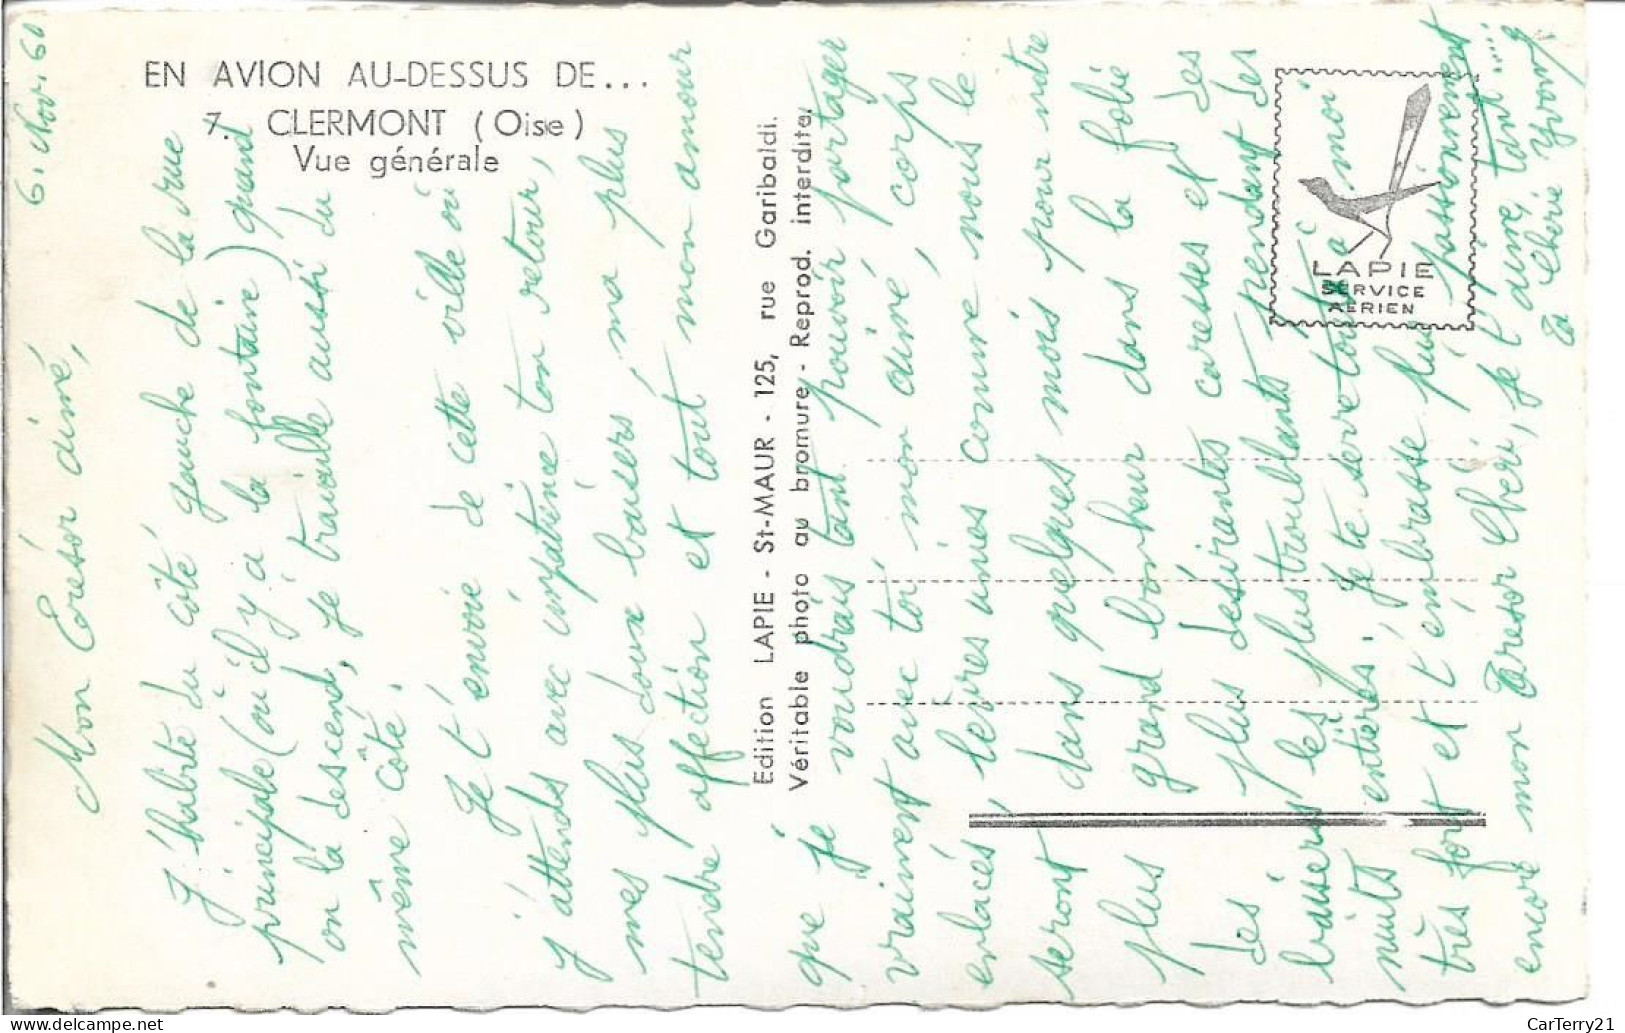 EN AVION AU-DESSUS DE...
7. CLERMONT (Oise)
Vue générale
Edition LAPIE - St-MAUR - 125, rue Garibaldi.
Véritable photo au bromure - Reprod. interdite.
LAPIE
SERVICE
AERIEN
6. Nov. 60
Mon Trésor aimé,
J'habite du côté gauche de la rue
principale (où il y a la fontaine) quand
on la descend, je travaille aussi du
même côté.
Je t'envoie de cette ville où
j'attends avec impatience ton retour,
mes plus doux baisers, ma plus
tendre affection et tout mon amour
que je voudrais tant pouvoir partager
vraiment avec toi mon aimé, corps
enlacés, lèvres unies comme nous le
seront dans quelques mois pour notre
plus grand bonheur dans la folie
des plus désirantes caresses et des
baisers les plus troublants pendant des
nuits entières. Je te serre tout c. à moi
très fort et t'embrasse plus passionnément
encore mon Trésor Chéri, je t'aime tant.....
Ta Chérie Yvonne
CarTerry21